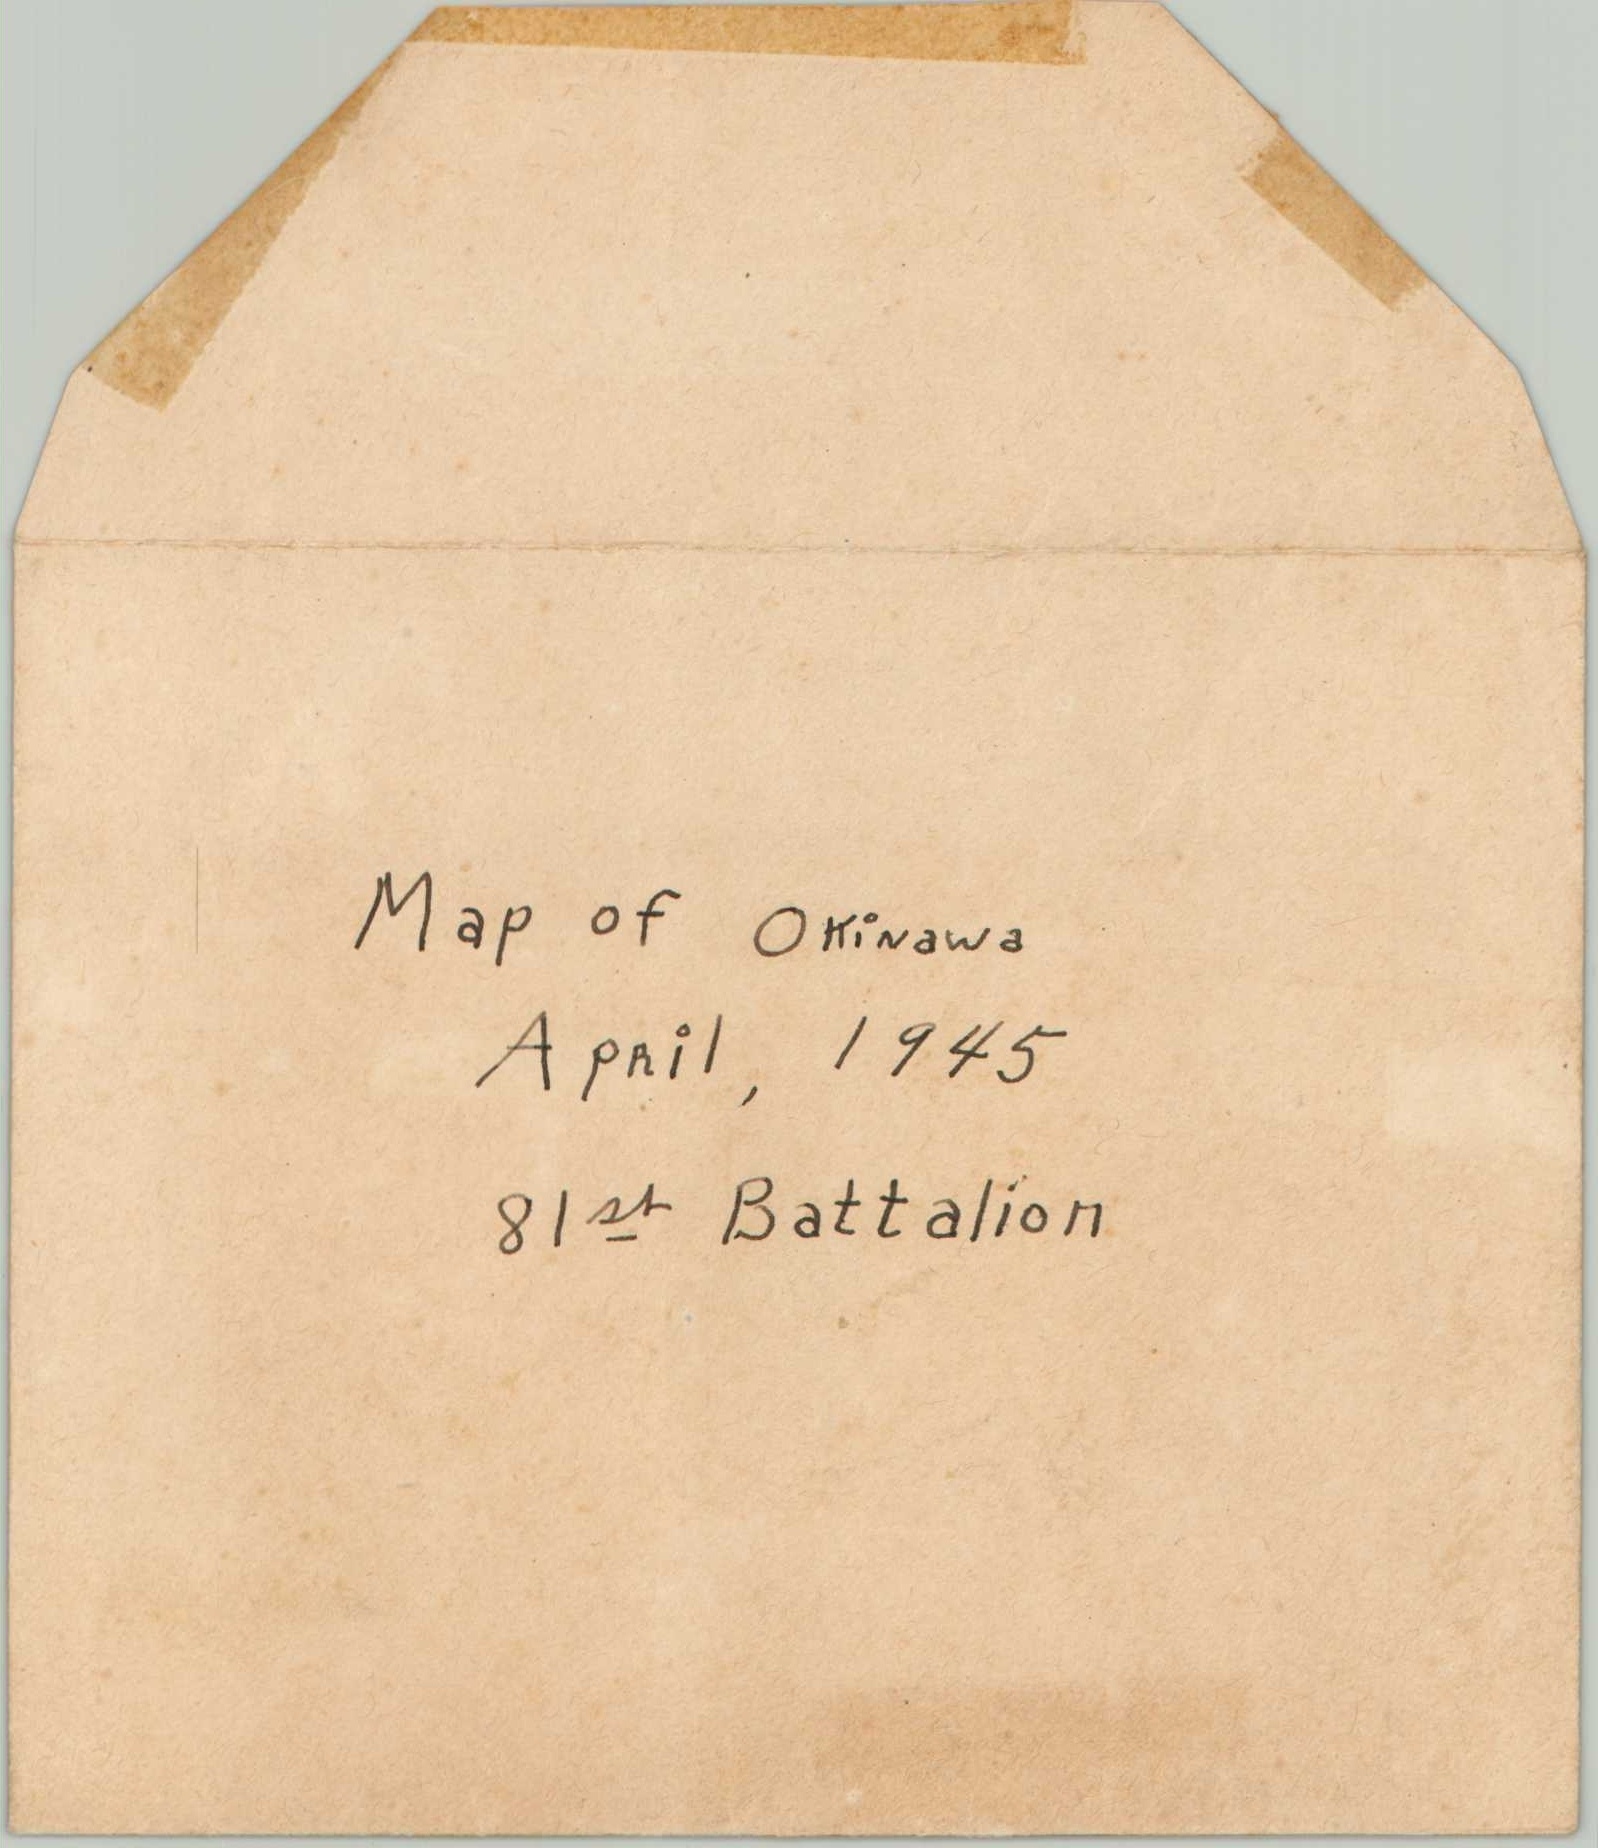 Map of Okinawa
April, 1945
81st Battalion